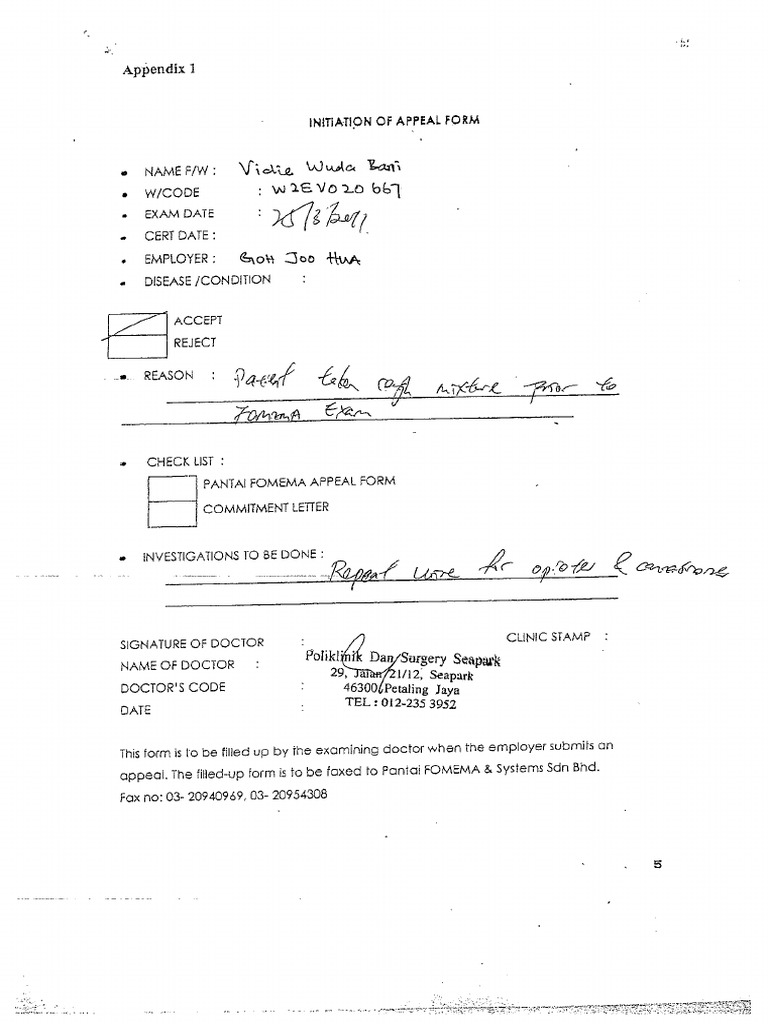 Appendix 1
INITIATION OF APPEAL FORM
NAME F/W : Vidie Wuda Bani
W/CODE : W2EV020667
EXAM DATE : 25/3/2011
CERT DATE :
EMPLOYER : GOH JOO HUA
DISEASE /CONDITION :
ACCEPT
REJECT
REASON : Patient taken cough mixture prior to
FOMEMA Exam
CHECK LIST :
PANTAI FOMEMA APPEAL FORM
COMMITMENT LETTER
INVESTIGATIONS TO BE DONE :
Repeat urine for opiates &
SIGNATURE OF DOCTOR : CLINIC STAMP :
NAME OF DOCTOR :
DOCTOR'S CODE :
DATE :
Poliklinik Dan Surgery Seapark
29, Jalan 21/12, Seapark
46300 Petaling Jaya
TEL : 012-235 3952
This form is to be filled up by the examining doctor when the employer submits an
appeal. The filled-up form is to be faxed to Pantai FOMEMA & Systems Sdn Bhd.
Fax no: 03- 20940969, 03- 20954308
5